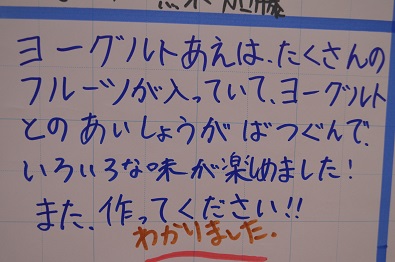 ヨーグルトあえは、たくさんの
フルーツが入っていて、ヨーグルト
とのあいしょうがばつぐんで、
いろいろな味が楽しめました!
また、作ってください!!
わかりました.